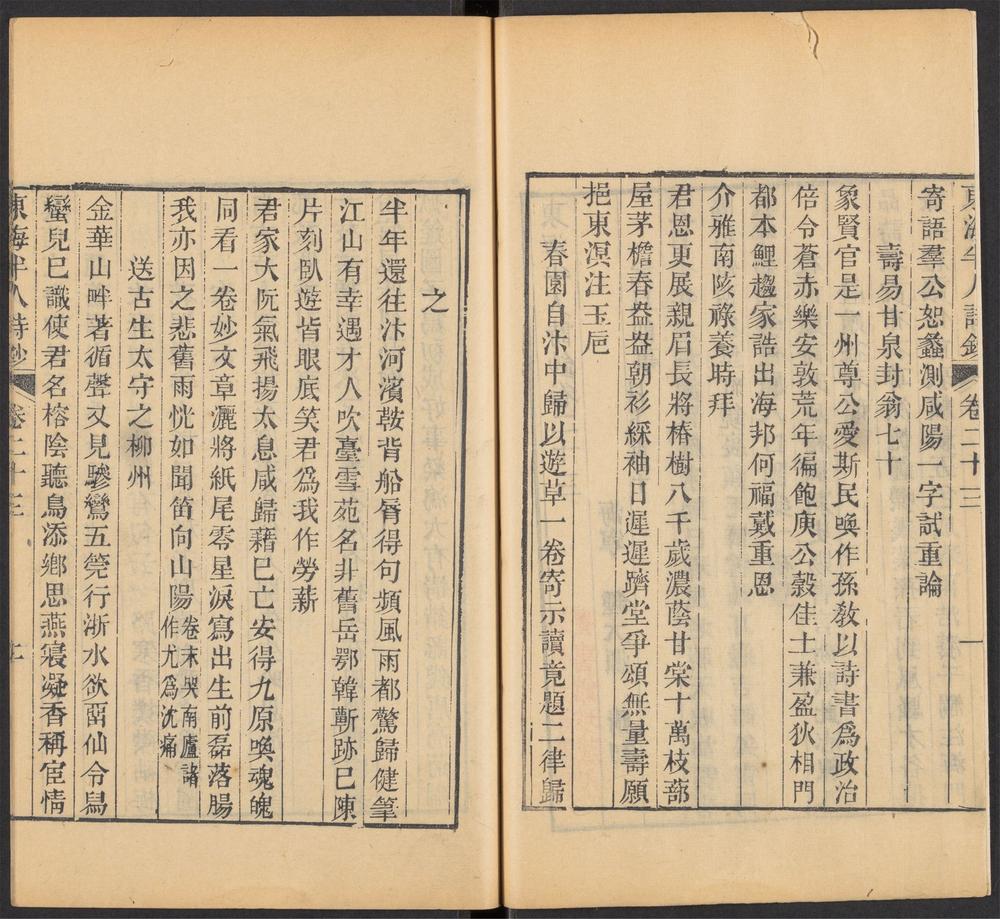 東海半人詩鈔　卷二十三　一
寄語羣公恕蠡測咸陽一字試重論
壽易甘泉封翁七十
象賢官是一州尊公愛斯民喚作孫敎以詩書爲政治
倍令蒼赤樂安敦荒年徧飽庾公穀佳士兼盈狄相門
都本鯉趨家誥出海邦何福戴重恩
介雅南陔祿養時拜
君恩更展親眉長將椿樹八千歲濃蔭甘棠十萬枝部
屋茅檐春盎盎朝衫綵袖日遲遲躋堂爭頌無量壽願
挹東溟注玉巵
春園自汴中歸以遊草一卷寄示讀竟題二律歸
之
半年還往汴河濱鞍背船脣得句頻風雨都驚歸健筆
江山有幸遇才人吹臺雪苑名非舊岳鄂韓蘄跡已陳
片刻臥遊皆眼底笑君爲我作勞薪
君家大阮氣飛揚太息咸歸藉已亡安得九原喚魂魄
同看一卷妙文章灑將紙尾零星淚寫出生前磊落腸
我亦因之悲舊雨恍如聞笛向山陽卷末哭南廬諸
作尤爲沈痛
送古生太守之柳州
金華山畔著循聲又見驂鸞五筦行浙水欲畱仙令舄
蠻兒已識使君名榕陰聽鳥添鄉思燕寢凝香稱宦情
東海半人詩鈔　卷二十三